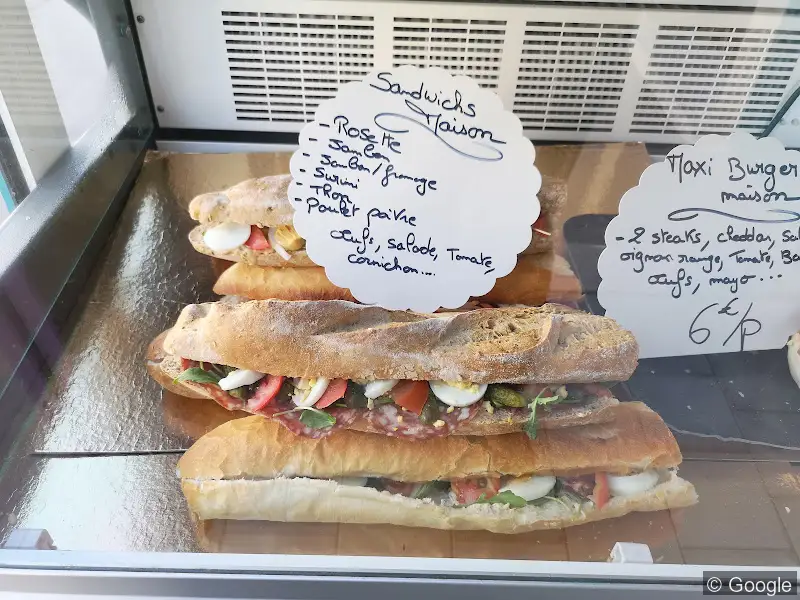 Sandwichs
Maison
- Rosette
- Jambon
- Jambon/fromage
- Surimi
- Thon
- Poulet poivre
œufs, salade, Tomate,
cornichon...
Maxi Burger
maison
- 2 steaks, cheddar,
oignon rouge, Tomate,
œufs, mayo...
6€/P
© Google